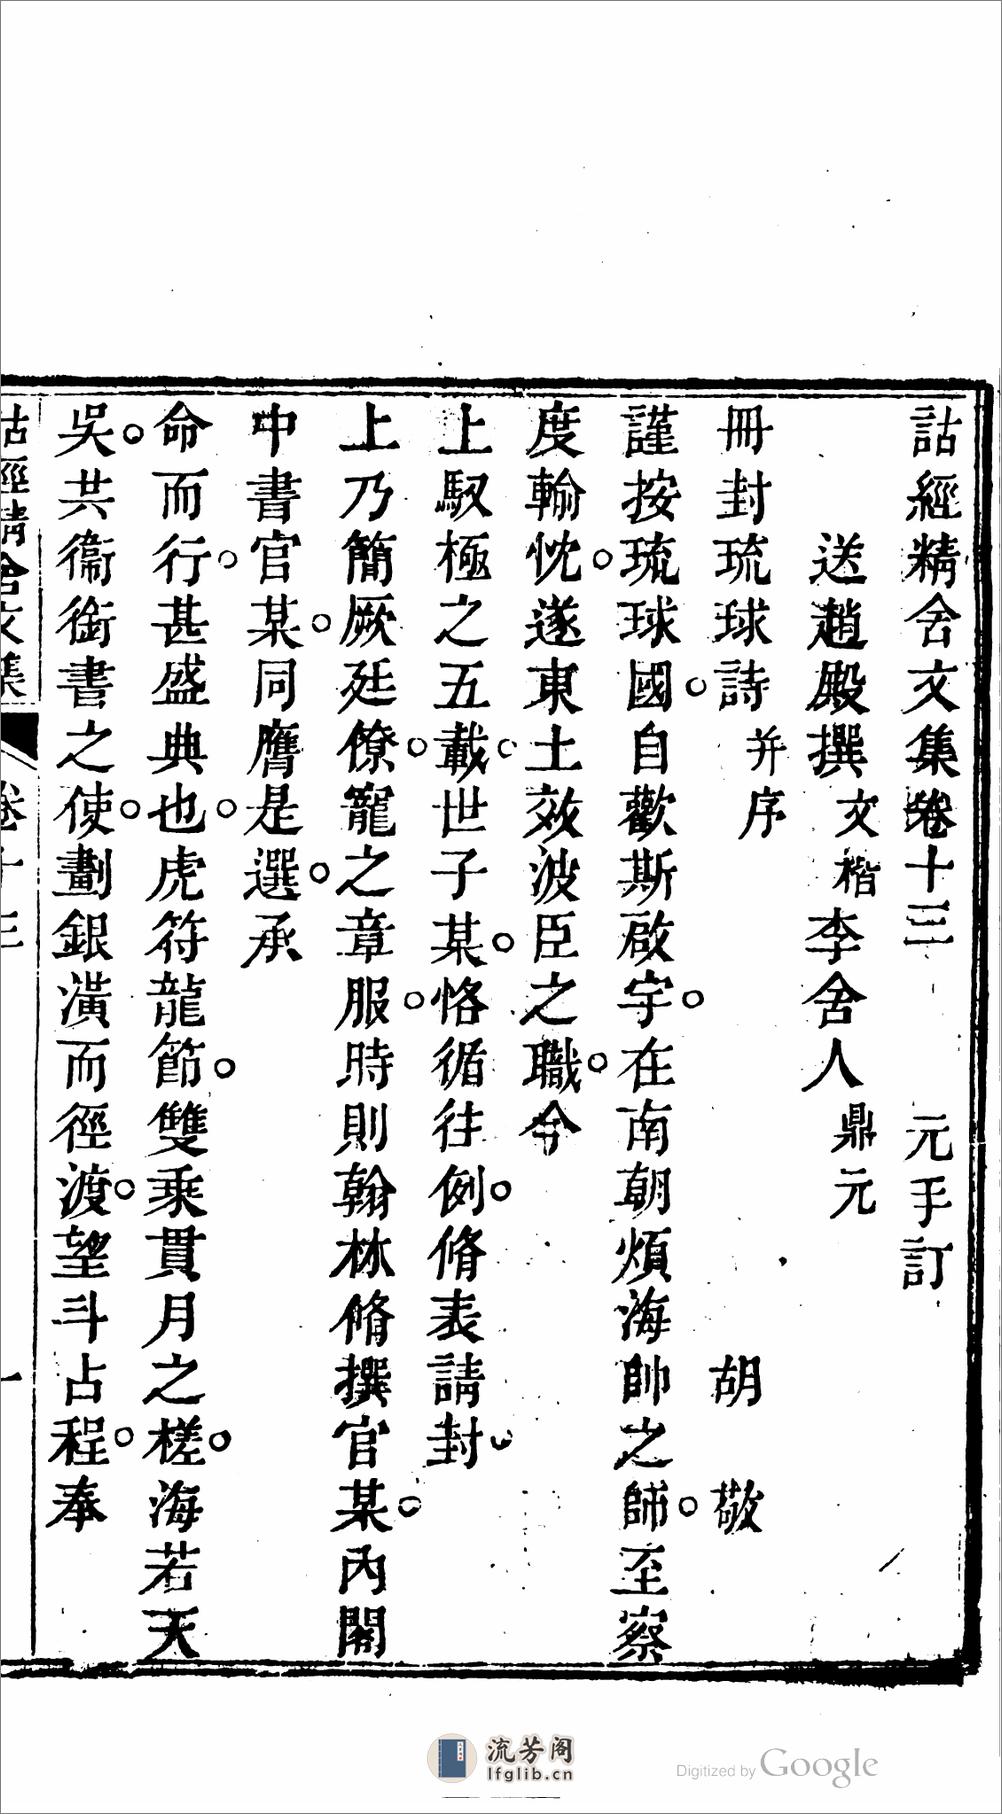 詁經精舍文集卷十三 元手訂
送趙殿撰文楷李舍人鼎元
冊封琉球詩并序 胡敬
謹按琉球國。自歡斯啟宇。在南朝煩海帥之師。至察
度輸忱。遂東土效波臣之職。今
上馭極之五載。世子某。恪循往例。脩表請封。
上乃簡厥廷僚。寵之章服。時則翰林脩撰官某。內閣
中書官某。同膺是選。承
命而行。甚盛典也。虎符龍節。雙乘貫月之槎。海若天
吳。共衞銜書之使。劃銀潢而徑渡。望斗占程。奉
詁經精舍文集 卷十三 一
流芳阁
lfglib.cn
Digitized by Google